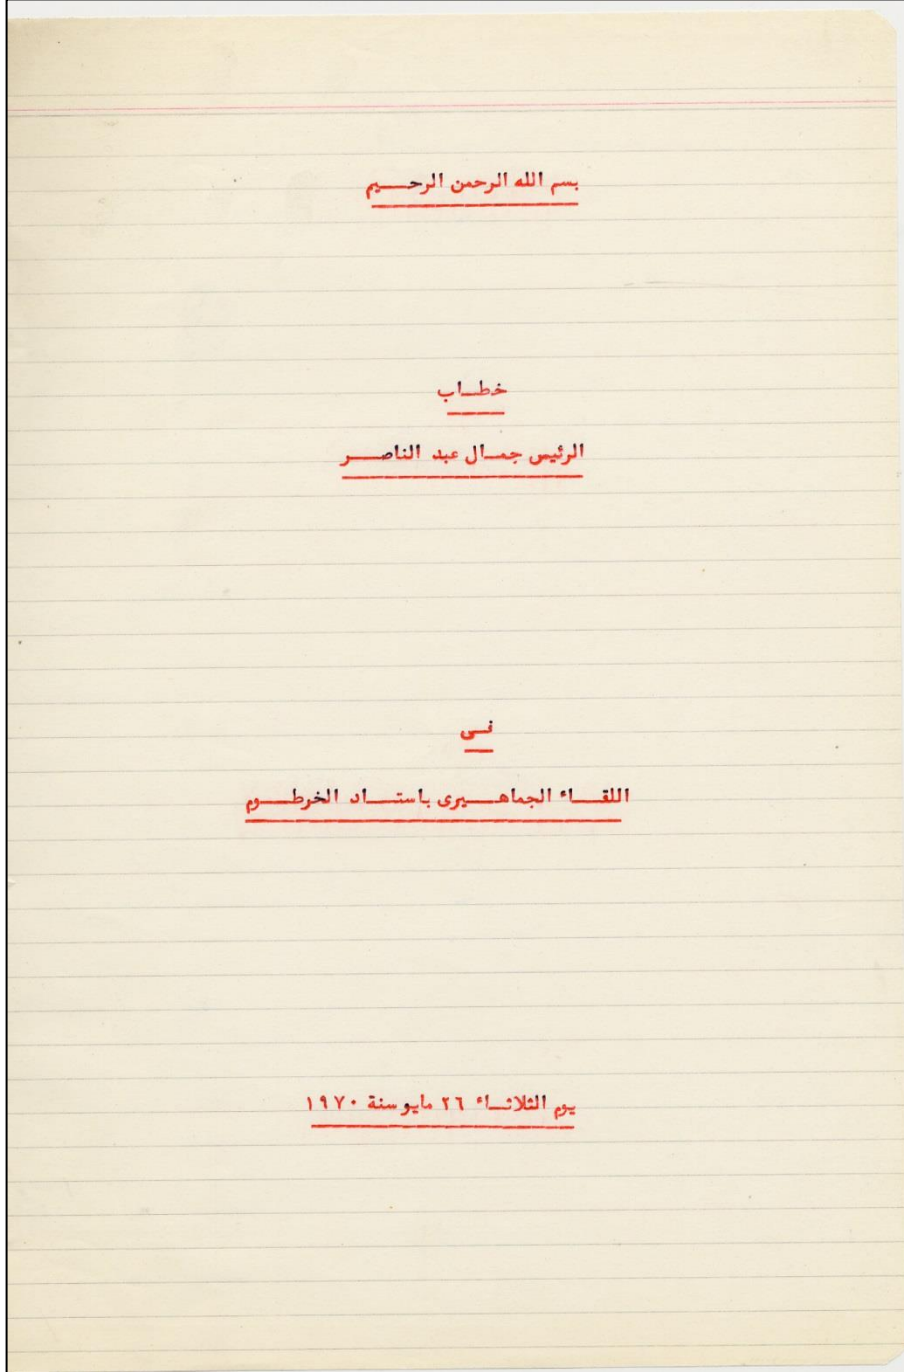 بسم الله الرحمن الرحيم
خطاب
الرئيس جمال عبد الناصر
فى
اللقاء الجماهيرى باستاد الخرطوم
يوم الثلاثاء ٢٦ مايو سنة ١٩٧٠